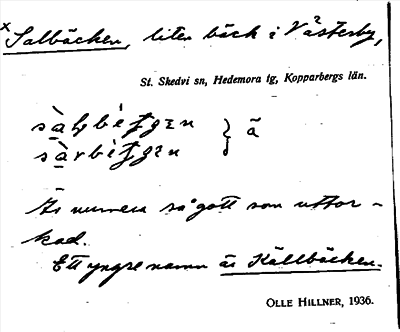 x Salbäcken, liten bäck i Västerby,
St. Skedvi sn, Hedemora tg, Kopparbergs län.
} ã
Är numera så gott som uttor-
kad.
Ett yngre namn är Källbäcken.
OLLE HILLNER, 1936.